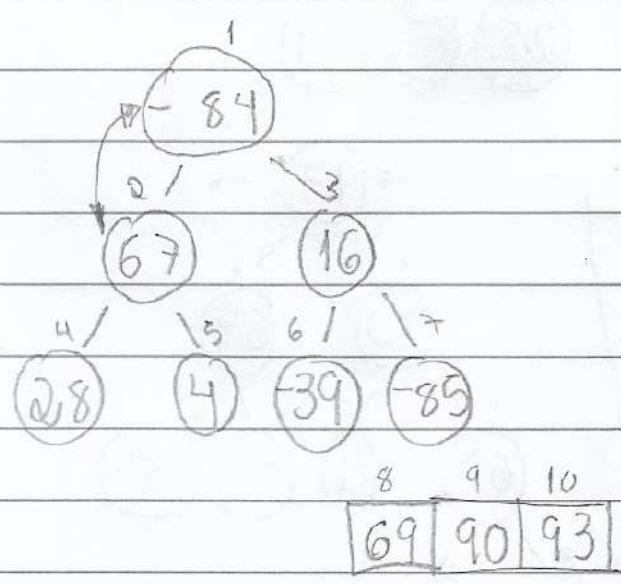 1
- 84
2 3
67 16
4 5 6 7
28 4 -39 -85
8 9 10
69 90 93